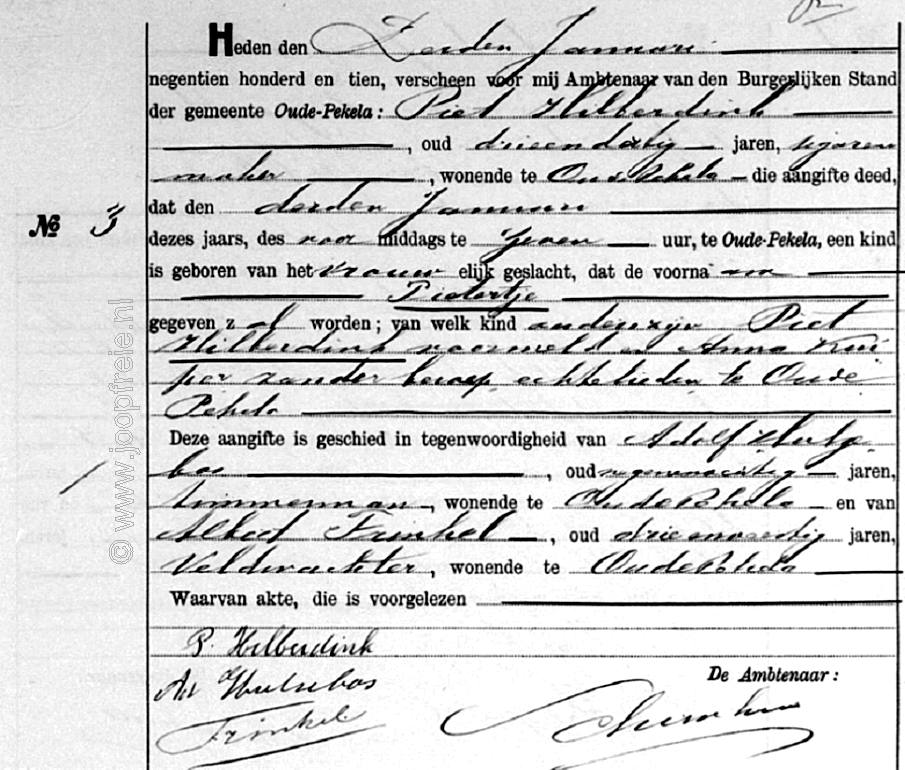 Heden den Derden Januari
negentien honderd en tien, verscheen voor mij Ambtenaar van den Burgerlijken Stand
der gemeente Oude-Pekela: Piet Hilberdink
, oud drieendertig jaren, sigaren
maker, wonende te Oude Pekela die aangifte deed,
No 3 dat den derden Januari
dezes jaars, des voor middags te zeven uur, te Oude-Pekela, een kind
is geboren van het vrouw elijk geslacht, dat de voorna am
Pietertje
gegeven z al worden; van welk kind ouders zijn Piet
Hilberdink voormeld en Anna Kui
per zonder beroep, echtelieden te Oude
Pekela
Deze aangifte is geschied in tegenwoordigheid van Adolf Hulze
bos, oud jaren,
timmerman, wonende te Oude Pekela en van
Albert Frinkel, oud jaren,
Veldwachter, wonende te Oude Pekela
Waarvan akte, die is voorgelezen
P. Hilberdink
Ad Hulsebos
De Ambtenaar:
Frinkel
© www.joopfreie.nl